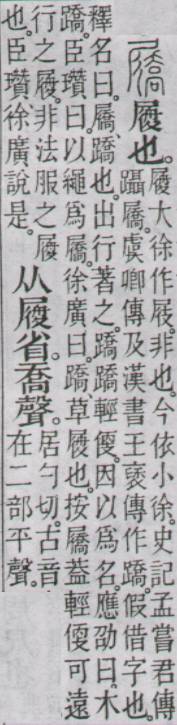 屩 履也。
履大徐作屐。非也。今依小徐。史記孟嘗君傳
躡屩。虞卿傳及漢書王褒傳作蹻。假借字也。
釋名曰。屩、蹻也。出行著之。蹻蹻輕便。因以爲名。應劭曰。木
蹻。臣瓚曰。以繩爲屩。徐廣曰。蹻、草履也。按屩葢輕便可遠
行之履。非法服之履
也。臣瓚、徐廣說是。
从履省喬聲。
居勺切。古音
在二部平聲。